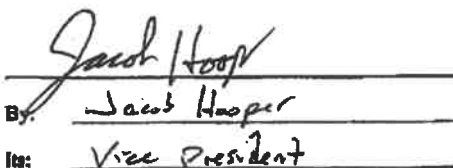 Jacob Hooper
By: Jacob Hooper
Its: Vice President